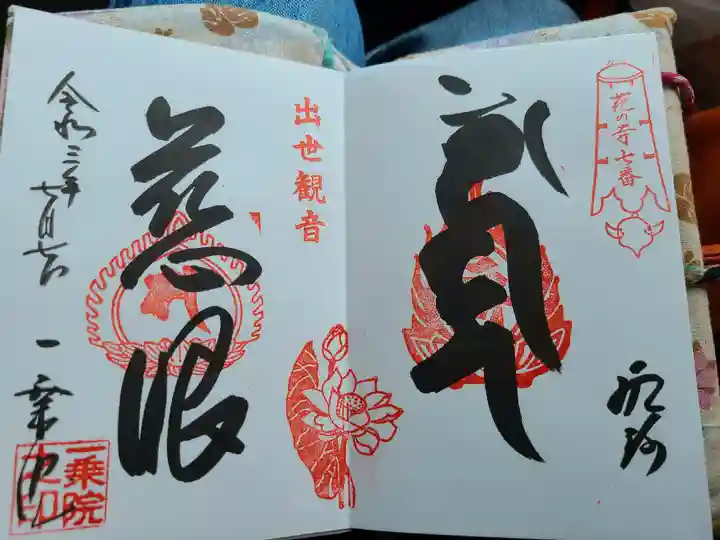 花の寺七番
出世観音
慈眼
令和三年
七月七日
一乗院
一乗院
之印